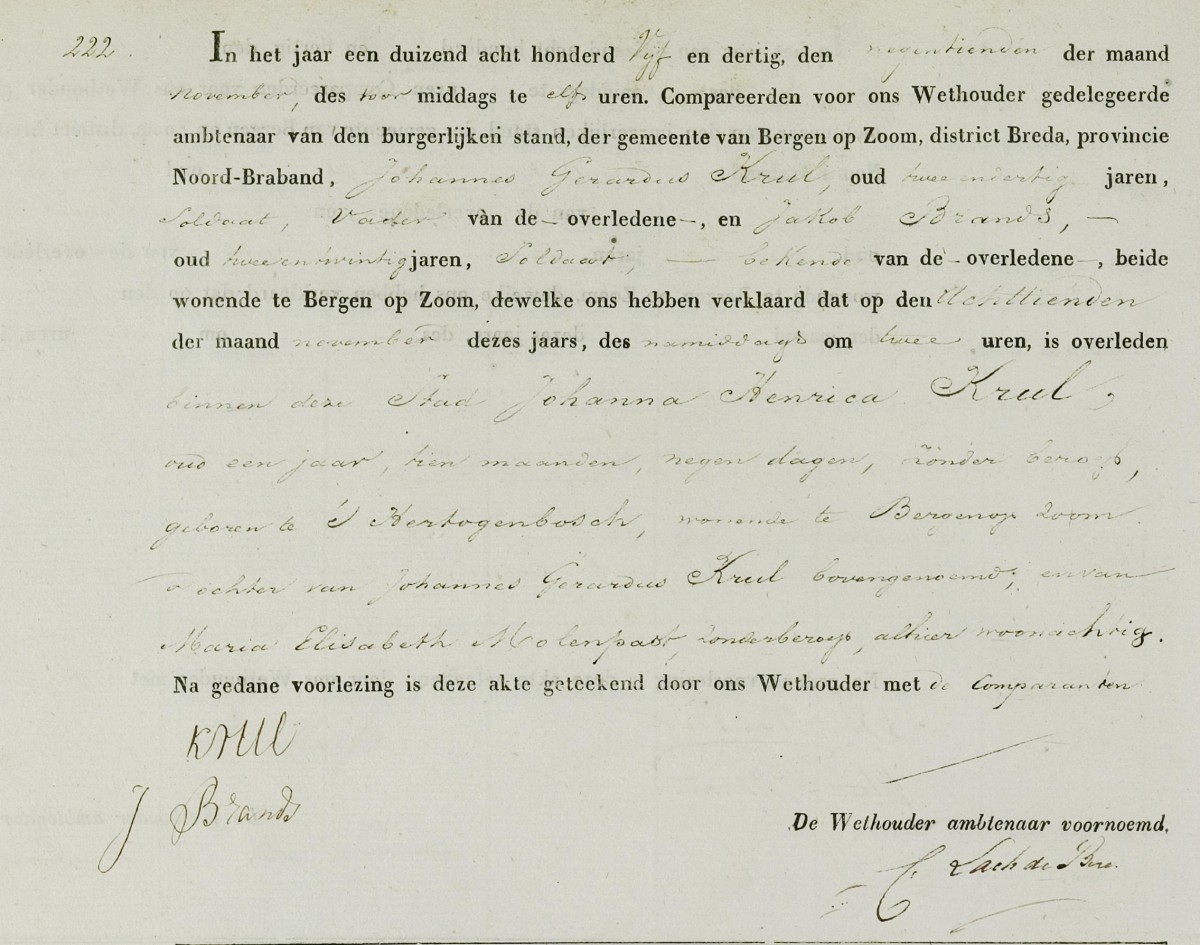 222.
In het jaar een duizend acht honderd Vijf en dertig, den negentienden der maand
november, des voor middags te elf uren. Compareerden voor ons Wethouder gedelegeerde
ambtenaar van den burgerlijken stand, der gemeente van Bergen op Zoom, district Breda, provincie
Noord-Braband, Johannes Gerardus Krul, oud twee endertig jaren,
Soldaat, Vader van de - overledene -, en Jakob Brands, -
oud twee entwintig jaren, Soldaat, - bekende van de - overledene -, beide
wonende te Bergen op Zoom, dewelke ons hebben verklaard dat op den Achttienden
der maand november dezes jaars, des namiddags om twee uren, is overleden
binnen deze Stad Johanna Henrica Krul,
oud een jaar, tien maanden, negen dagen, zonder beroep,
geboren te S Hertogenbosch, wonende te Bergenop Zoom.
Dochter van Johannes Gerardus Krul bovengenoemd; envan
Maria Elisabeth Molenpast, zonderberoep, alhier woonachtig.
Na gedane voorlezing is deze akte geteekend door ons Wethouder met de Comparanten
Krul
J Brands
De Wethouder ambtenaar voornoemd,